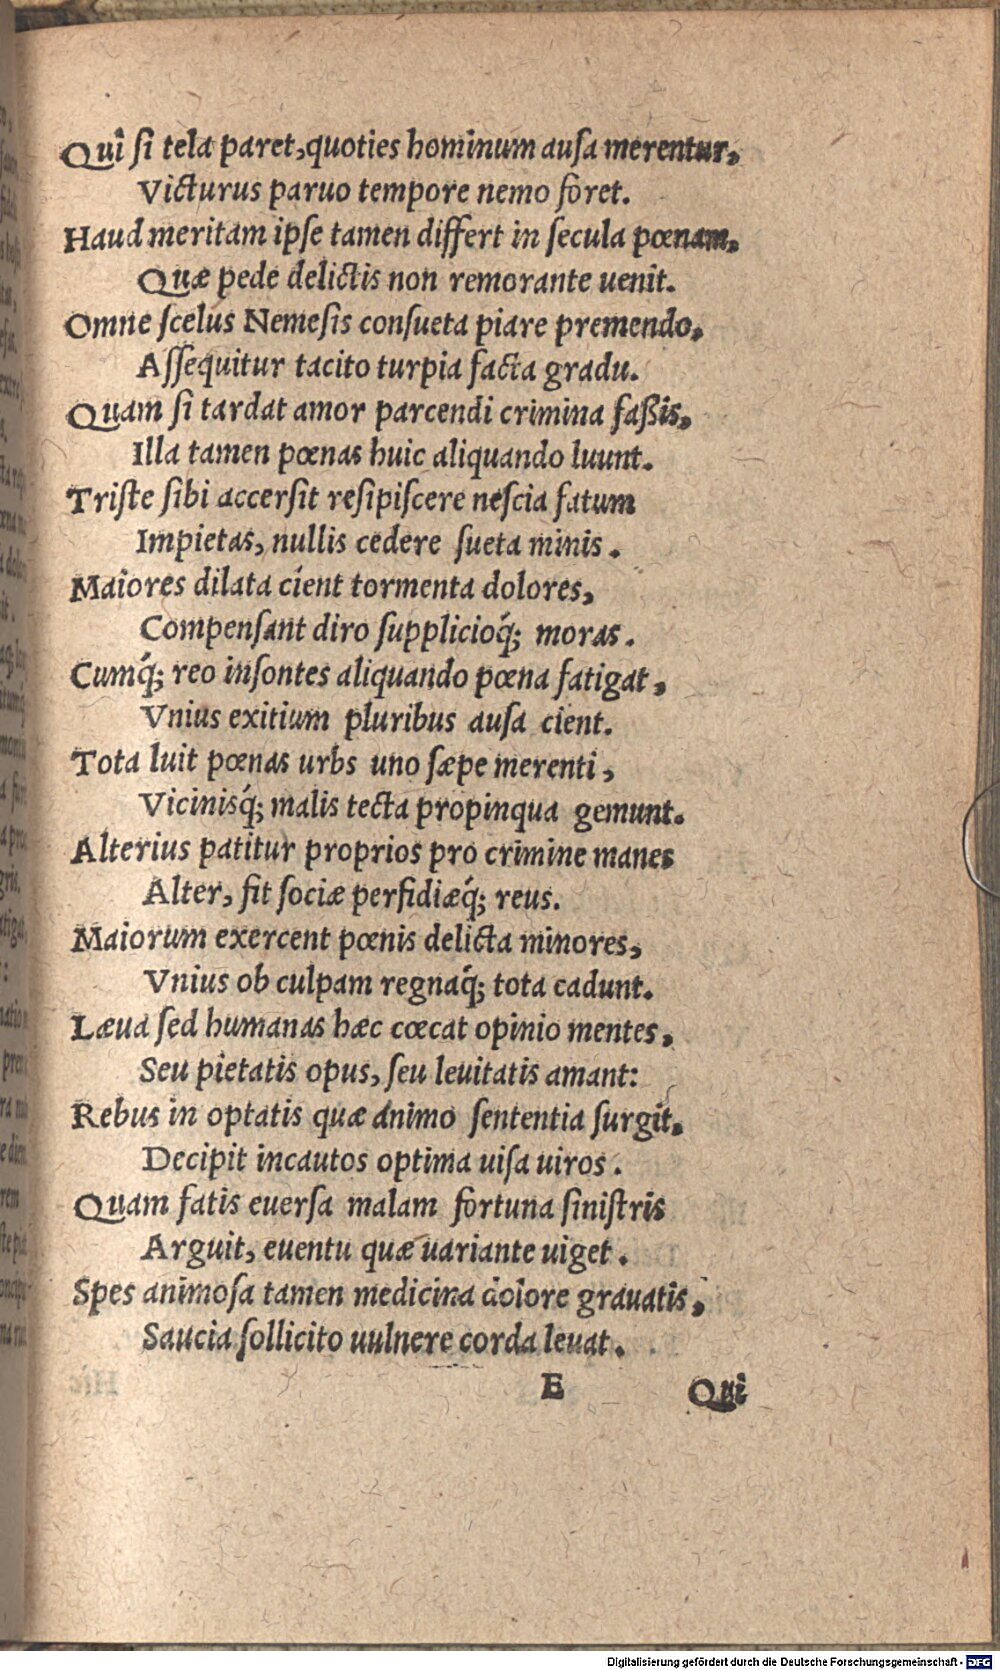 Qui ſi tela paret, quoties hominum auſa merentur,
Victurus paruo tempore nemo foret.
Haud meritam ipſe tamen differt in ſecula pœnam,
Quæ pede delictis non remorante uenit.
Omne ſcelus Nemeſis conſueta piare premendo,
Aſſequitur tacito turpia facta gradu.
Quam ſi tardat amor parcendi crimina faßis,
Illa tamen pœnas huic aliquando luunt.
Triſte ſibi accerſit reſipiſcere neſcia fatum
Impietas, nullis cedere ſueta minis.
Maiores dilata cient tormenta dolores,
Compenſant diro ſupplicioq́; moras.
Cumq́; reo inſontes aliquando pœna fatigat,
Vnius exitium pluribus auſa cient.
Tota luit pœnas urbs uno ſæpe merenti,
Vicinisq́; malis tecta propinqua gemunt.
Alterius patitur proprios pro crimine manes
Alter, fit ſociæ perfidiæq́; reus.
Maiorum exercent pœnis delicta minores,
Vnius ob culpam regnaq́; tota cadunt.
Læua ſed humanas hæc cœcat opinio mentes,
Seu pietatis opus, ſeu leuitatis amant:
Rebus in optatis quæ animo ſententia ſurgit,
Decipit incautos optima uiſa uiros.
Quam fatis euerſa malam fortuna ſiniſtris
Arguit, euentu quæ uariante uiget.
Spes animoſa tamen medicina dolore grauatis,
Saucia ſollicito uulnere corda leuat.
E Qui
Digitalisierung gefördert durch die Deutsche Forschungsgemeinschaft - DFG